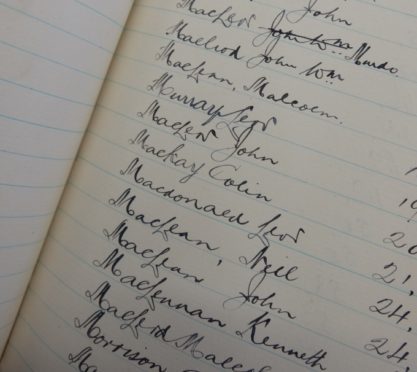 John
MacLeod John Wm Murdo
Macleod John Wm
MacLean, Malcolm.
Murray Geo
MacLeod John
Mackay Colin
Macdonald Geo 20
MacLean, Neil 21,
MacLean John 24,
MacLennan Kenneth 24,
MacLeod
Morrison